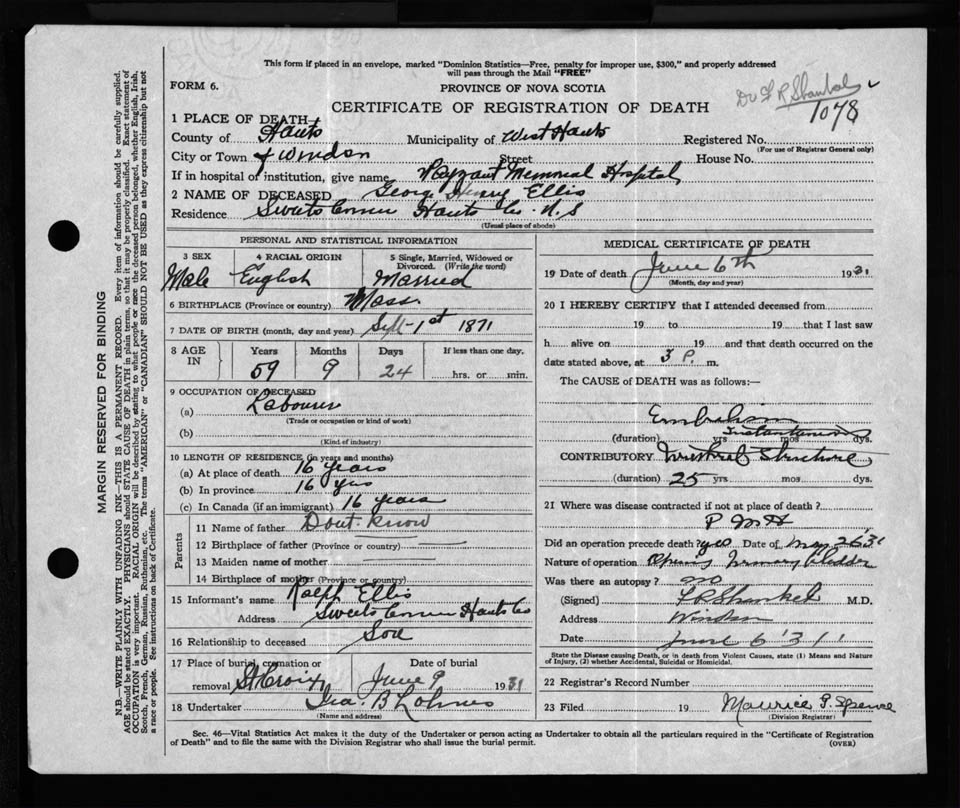 This form if placed in an envelope, marked "Dominion Statistics—Free, penalty for improper use, $300," and properly addressed
will pass through the Mail "FREE"
FORM 6.
PROVINCE OF NOVA SCOTIA
CERTIFICATE OF REGISTRATION OF DEATH
1078
1 PLACE OF DEATH
County of Hants Municipality of West Hants Registered No.
(For use of Registrar General only)
City or Town of Windsor Street House No.
If in hospital of institution, give name Payzant Memorial Hospital
2 NAME OF DECEASED George Henry Ellis
Residence Sweets Corner Hants Co. N.S
(Usual place of abode)
PERSONAL AND STATISTICAL INFORMATION
3 SEX 4 RACIAL ORIGIN 5 Single, Married, Widowed or
Divorced. (Write the word)
Male English Married
6 BIRTHPLACE (Province or country) Mass
7 DATE OF BIRTH (month, day and year) Sept 1st 1871
8 AGE IN Years Months Days If less than one day.
59 9 24 hrs. or min.
9 OCCUPATION OF DECEASED
(a) Labourer
(Trade or occupation or kind of work)
(b)
(Kind of industry)
10 LENGTH OF RESIDENCE (in years and months)
(a) At place of death 16 years
(b) In province 16 yrs
(c) In Canada (if an immigrant) 16 years
Parents
11 Name of father Dont Know
12 Birthplace of father (Province or country)
13 Maiden name of mother
14 Birthplace of mother (Province or country)
15 Informant's name Ralph Ellis
Address Sweets Corner Hants Co
16 Relationship to deceased Son
17 Place of burial, cremation or Date of burial
removal St Croix June 9 1931
18 Undertaker Ira. B Lohnes
(Name and address)
MEDICAL CERTIFICATE OF DEATH
19 Date of death June 6th 1931
(Month, day and year)
20 I HEREBY CERTIFY that I attended deceased from
19 to 19 that I last saw
h alive on 19 and that death occurred on the
date stated above, at 3 P. m.
The CAUSE of DEATH was as follows:
Embolism
(duration) yrs Instantaneous mos dys.
CONTRIBUTORY Urethral Stricture
(duration) 25 yrs mos dys.
21 Where was disease contracted if not at place of death?
P M H
Did an operation precede death? yes Date of May 26 31
Nature of operation Opening Urinary bladder
Was there an autopsy? no
(Signed) F R Shankel M.D.
Address Windsor
Date June 6 '31
State the Disease causing Death, or in death from Violent Causes, state (1) Means and Nature
of Injury, (2) whether Accidental, Suicidal or Homicidal.
22 Registrar's Record Number
23 Filed 19 Maurice Spence
(Division Registrar)
Sec. 46—Vital Statistics Act makes it the duty of the Undertaker or person acting as Undertaker to obtain all the particulars required in the "Certificate of Registration
of Death" and to file the same with the Division Registrar who shall issue the burial permit.
(OVER)
MARGIN RESERVED FOR BINDING
N.B.—WRITE PLAINLY WITH UNFADING INK—THIS IS A PERMANENT RECORD. Every item of information should be carefully supplied.
AGE should be stated EXACTLY. PHYSICIANS should STATE CAUSE OF DEATH in plain terms, so that it may be properly classified. Exact statement of
OCCUPATION is very important. RACIAL ORIGIN will be described by stating to what people or race the deceased person belonged, whether English, Irish,
Scotch, French, German, Russian, Ruthenian, etc. The terms "AMERICAN" or "CANADIAN" SHOULD NOT BE USED as they express citizenship but not
a race or people. See instructions on back of Certificate.